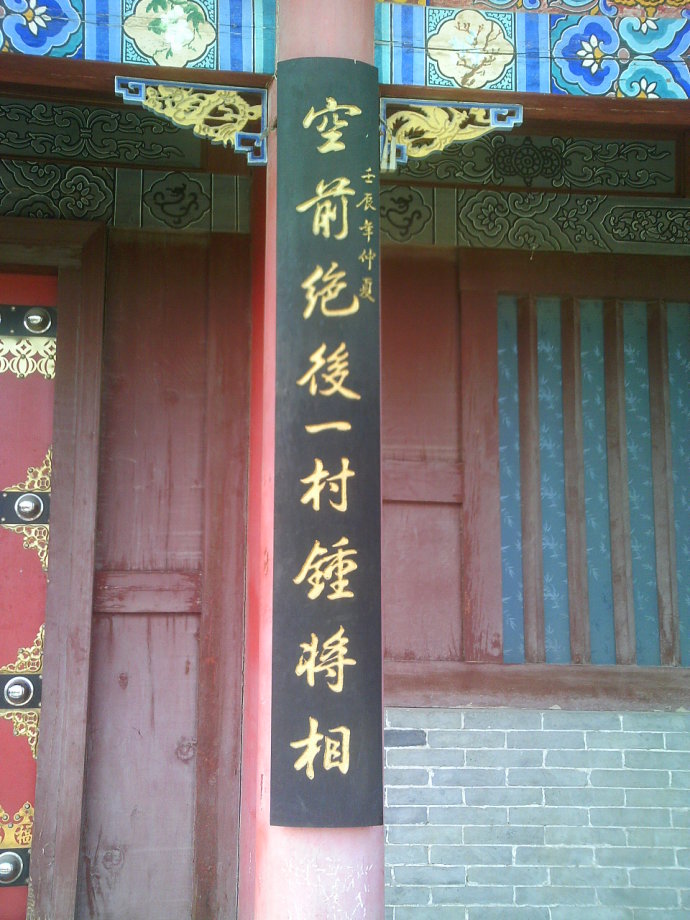 空前绝後一村鍾将相
壬辰年仲夏
福